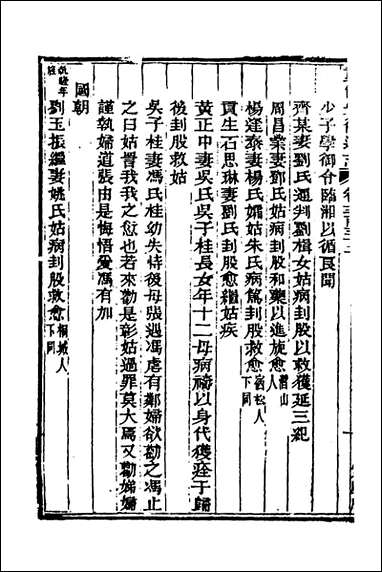 少子學御令臨湘以循良聞
齊某妻劉氏通判劉楫女姑病刲股以救獲延三紀
周昌業妻鄧氏姑病刲股和藥以進旋愈潛山人
楊逵泰妻楊氏孀姑朱氏病篤刲股救愈宿松人下同
貢生石思琳妻劉氏刲股愈繼姑疾
黃正中妻吳氏吳子桂長女年十二母病禱以身代獲痊于歸
後刲股救姑
吳子桂妻馮氏桂幼失恃後母張遇馮虐有鄰婦欲勸之馮止
之曰姑詈我我之愆也若來勸是彰姑過罪莫大焉又勸娣婦
謹執婦道張由是悔悟愛馮有加
國朝
劉玉振繼妻姚氏姑病刲股救愈桐城人下同